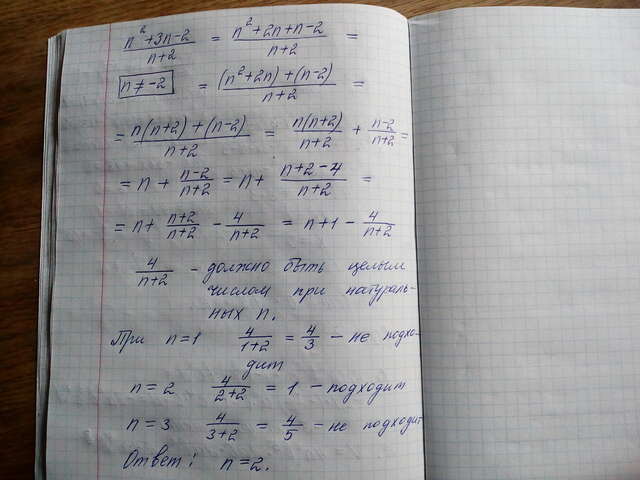 (n²+3n-2)/(n+2) = (n²+2n+n-2)/(n+2) =
n≠-2 = ((n²+2n)+(n-2))/(n+2) =
= (n(n+2)+(n-2))/(n+2) = (n(n+2))/(n+2) + (n-2)/(n+2) =
= n + (n-2)/(n+2) = n + (n+2-4)/(n+2) =
= n + (n+2)/(n+2) - 4/(n+2) = n+1 - 4/(n+2)
4/(n+2) - должно быть целым
числом при натураль-
ных n.
При n=1 4/(1+2) = 4/3 - не подхо-
дит
n=2 4/(2+2) = 1 - подходит
n=3 4/(3+2) = 4/5 - не подходит
Ответ: n=2.